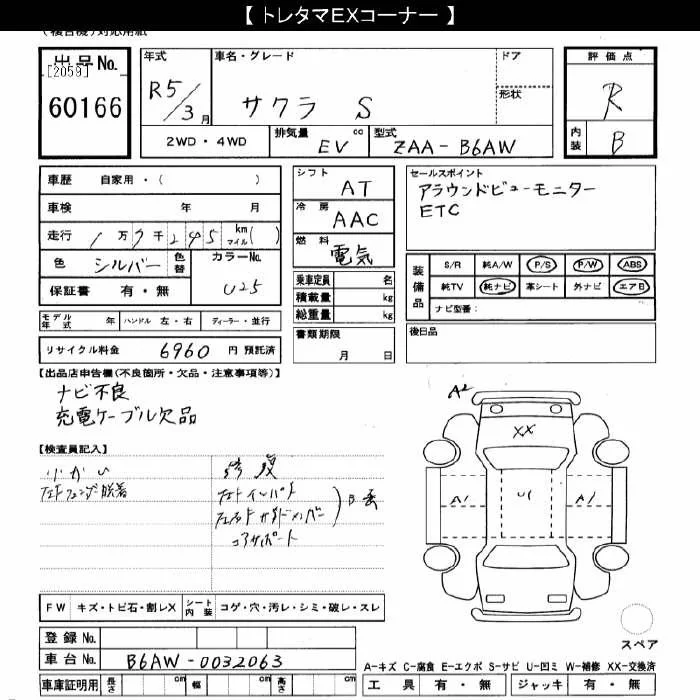 【 トレタマEXコーナー 】
(複合機)対応用紙
出品No.
[2059]
60166
年式
R5/3月
車名・グレード
サクラ S
ドア
形状
評価点
R
内装
B
2WD・4WD
排気量
EV cc
型式
ZAA-B6AW
車歴 自家用・( )
車検 年 月
走行 1万7千245 km マイル( )
色 シルバー 色替
カラーNo.
U25
保証書 有・無
シフト
AT
冷房
AAC
燃料
電気
乗車定員 名
積載量 kg
総重量 kg
書類期限
月 日
セールスポイント
アラウンドビューモニター
ETC
装備品
S/R 純A/W P/S P/W ABS
純TV 純ナビ 革シート 外ナビ エアB
ナビ型番:
後日品
モデル年式 年 ハンドル 左・右 ディーラー・並行
リサイクル料金 6960 円 預託済
【出品店申告欄(不良箇所・欠品・注意事項等)】
ナビ不良
充電ケーブル欠品
【検査員記入】
小かい
修復
コアサポート
A2
XX
A1
U1
A1
FW キズ・トビ石・割レX シート内装 コゲ・穴・汚レ・シミ・破レ・スレ
登録No.
車台No. B6AW-0032063
車庫証明用 長さ cm 幅 cm 高さ cm
スペア
A-キズ C-腐食 E-エクボ S-サビ U-凹ミ W-補修 XX-交換済
工具 有・無 ジャッキ 有・無